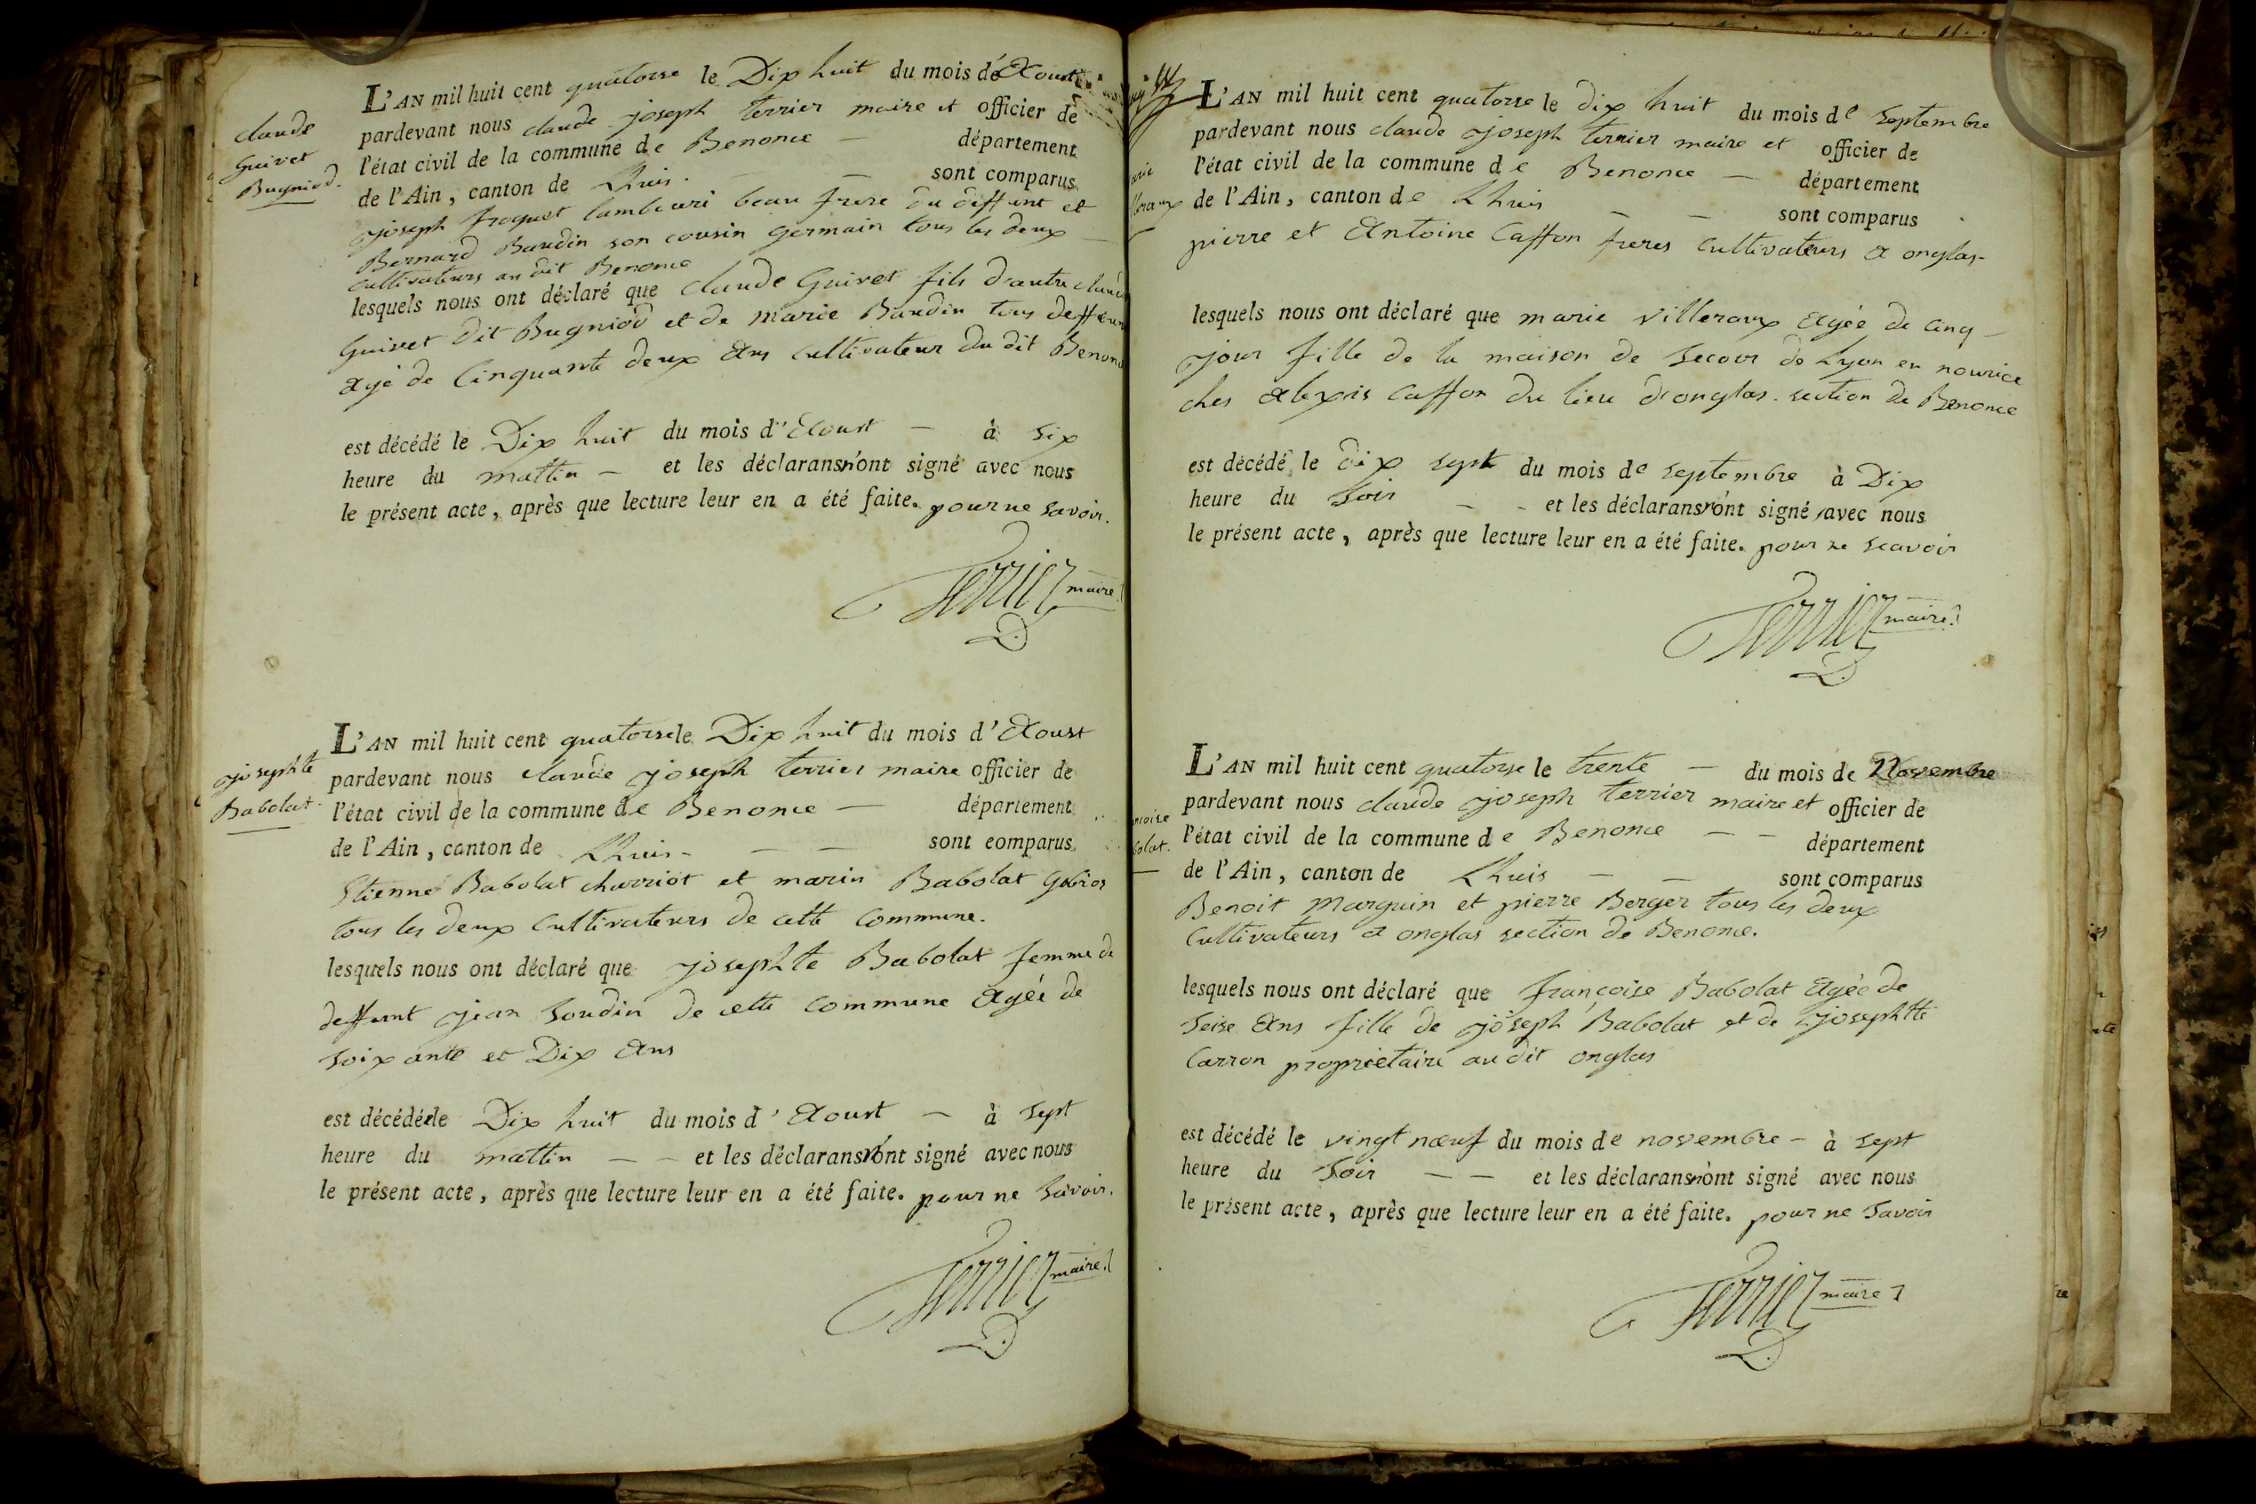 claude
Guivet
Bugniod.
L'AN mil huit cent quatorse le Dix huit du mois de Aoust
pardevant nous claude joseph terrier maire et officier de
l'état civil de la commune de Benonce — département
de l'Ain, canton de Lhuis. — — sont comparus
joseph froquet lambeuri beau frere du diffunt et
Bernard Baudin son cousin germain tous les deux —
cultivateurs au dit Benonce
lesquels nous ont déclaré que claude Guivet fils d'autre claude
Guivet dit Bugniod et de marie Baudin tous deffunt
agé de Cinquante deux ans cultivateur du dit Benonce
est décédé le Dix huit du mois d'Aoust — à six
heure du mattin — et les déclarans n'ont signé avec nous
le présent acte, après que lecture leur en a été faite. pour ne savoir.
Terrier maire
D.
josephte
Babolat.
L'AN mil huit cent quatorse le Dix huit du mois d'Aoust
pardevant nous claude joseph terrier maire officier de
l'état civil de la commune de Benonce — département
de l'Ain, canton de Lhuis — — sont comparus
Etienne Babolat charriot et marin Babolat
tous les deux cultivateurs de cette commune.
lesquels nous ont déclaré que josephte Babolat femme de
deffunt jean Soudin de cette commune Agée de
soixante et Dix Ans
est décédée le Dix huit du mois d'Aoust — à sept
heure du mattin — — et les déclarans n'ont signé avec nous
le présent acte, après que lecture leur en a été faite. pour ne savoir.
Terrier maire
D.
L'AN mil huit cent quatorse le dix huit du mois de septembre
pardevant nous claude joseph terrier maire et officier de
l'état civil de la commune de Benonce — département
de l'Ain, canton de Lhuis — — sont comparus
pierre et Antoine Caffon freres cultivateurs a onglas-
lesquels nous ont déclaré que marie villeraux Agée de cinq —
jour fille de la maison de secour de Lyon en nourice
ches alexis Caffon du lieu d'onglas. section de Benonce
est décédé le dix sept du mois de septembre à Dix
heure du soir — - et les déclarans n'ont signé avec nous
le présent acte, après que lecture leur en a été faite. pour ne scavoir
Terrier maire
D.
L'AN mil huit cent quatorse le trente — du mois de Novembre
pardevant nous claude joseph terrier maire et officier de
l'état civil de la commune de Benonce — — département
de l'Ain, canton de Lhuis — — sont comparus
Benoit Marguin et pierre Berger tous les deux
cultivateurs a onglas section de Benonce.
lesquels nous ont déclaré que françoise Babolat Agée de
seise Ans fille de joseph Babolat et de josephtte
Carron proprietaire au dit onglas
est décédé le vingt nœuf du mois de novembre — à sept
heure du soir — — et les déclarans n'ont signé avec nous
le présent acte, après que lecture leur en a été faite. pour ne savoir
Terrier maire
D.